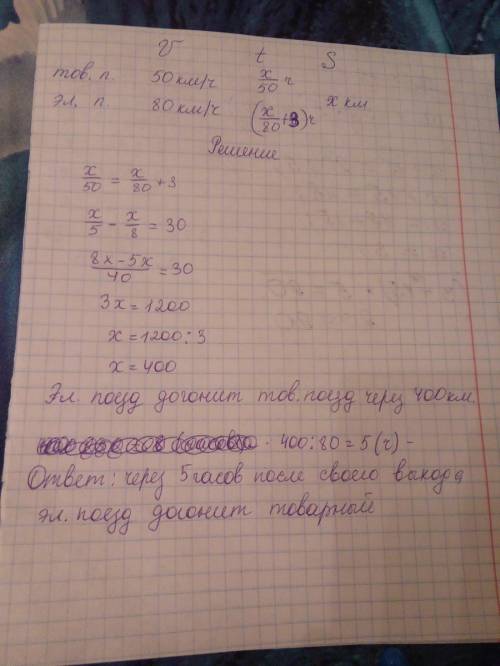 V t S
тов. п. 50 км/ч x/50 ч
эл. п. 80 км/ч (x/80+3)ч x км
Решение
x/50 = x/80 + 3
x/5 - x/8 = 30
8x-5x/40 = 30
3x = 1200
x = 1200:3
x = 400
Эл. поезд догонит тов. поезд через 400 км.
400:80 = 5 (ч) -
Ответ: через 5 часов после своего выхода
эл. поезд догонит товарный